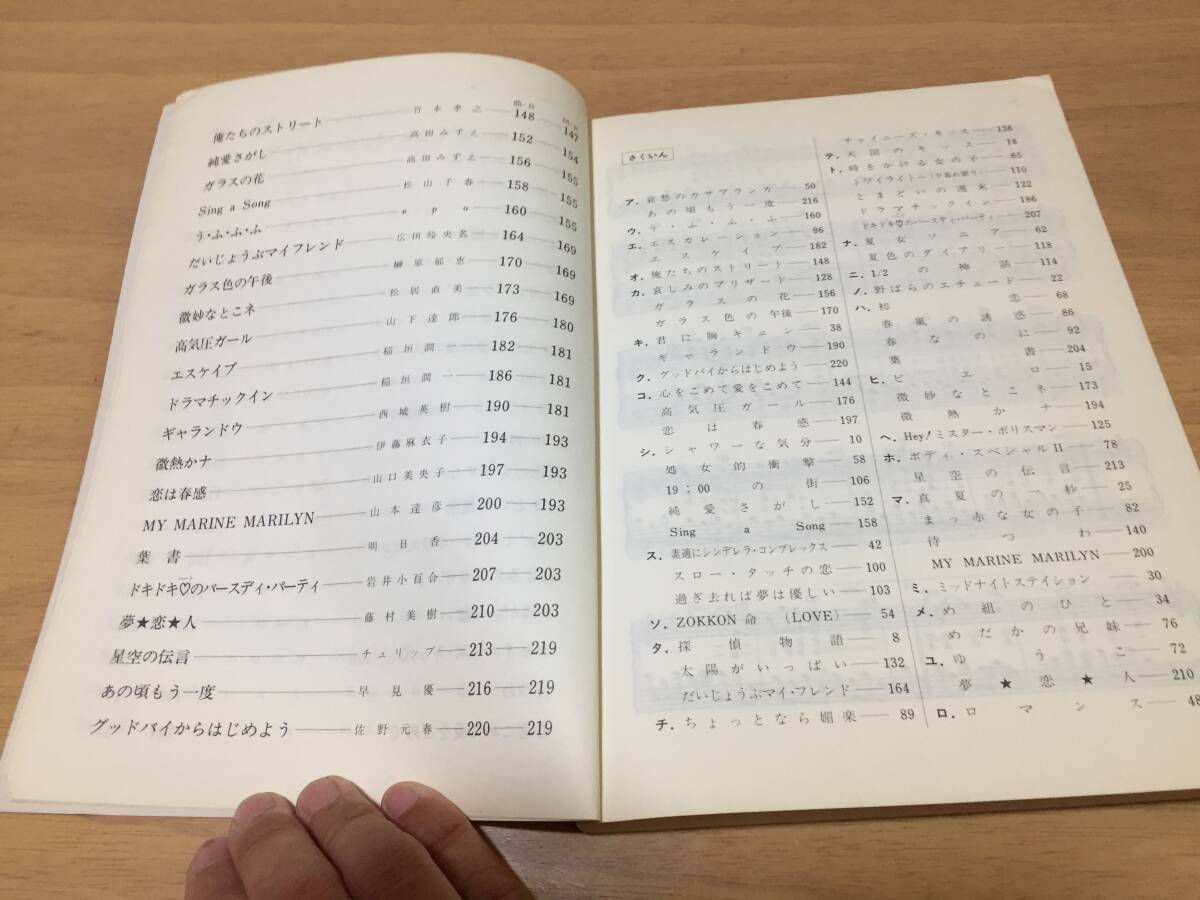 曲・頁 詞・頁
俺たちのストリート 竹本孝之 148 147
純愛さがし 高田みずえ 152 154
ガラスの花 高田みずえ 156 155
Sing a Song 松山千春 158 155
う・ふ・ふ・ふ epo 160 155
だいじょうぶマイフレンド 広田玲央名 164 169
ガラス色の午後 榊原郁恵 170 169
微妙なとこネ 松居直美 173 169
高気圧ガール 山下達郎 176 180
エスケイプ 稲垣潤一 182 181
ドラマチックイン 稲垣潤一 186 181
ギャランドゥ 西城英樹 190 181
微熱かナ 伊藤麻衣子 194 193
恋は春感 山口美央子 197 193
MY MARINE MARILYN 山本達彦 200 193
葉書 明日香 204 203
ドキドキ♡のバースディ・パーティ 岩井小百合 207 203
夢★恋★人 藤村美樹 210 203
星空の伝言 チューリップ 213 219
あの頃もう一度 早見優 216 219
グッドバイからはじめよう 佐野元春 220 219
さくいん
ア. 哀愁のカサブランカ 50
あの頃もう一度 216
ウ. う・ふ・ふ・ふ 160
エ. エスカレーション 96
エスケイプ 182
オ. 俺たちのストリート 148
カ. 哀しみのブリザード 128
ガラスの花 156
ガラス色の午後 170
キ. 君に胸キュン 38
ギャランドゥ 190
ク. グッドバイからはじめよう 220
コ. 心をこめて愛をこめて 144
高気圧ガール 176
恋は春感 197
シ. シャワーな気分 10
処女的衝撃 58
19:00の街 106
純愛さがし 152
Sing a Song 158
ス. 素適にシンデレラ・コンプレックス 42
スロー・タッチの恋 100
過ぎ去れば夢は優しい 103
ソ. ZOKKON 命 (LOVE) 54
タ. 探偵物語 8
太陽がいっぱい 132
だいじょうぶマイ・フレンド 164
チ. ちょっとなら媚楽 89
チャイニーズ・キッス 136
テ. 天国のキッス 18
ト. 時をかける女の子 65
トワイライト〜(夕暮れ便り) 110
とまどいの週末 122
ドラマチックイン 186
ドキドキ♡のバースディ・パーティ 207
ナ. 夏女ソニア 62
夏色のダイアリー 118
ニ. 1/2の神話 114
ノ. 野ばらのエチュード 22
ハ. 初恋 68
春風の誘惑 86
春なのに 92
葉書 204
ヒ. ピエロ 15
微妙なとこネ 173
微熱かナ 194
ヘ. Hey!ミスター・ポリスマン 125
ホ. ボディ・スペシャルII 78
星空の伝言 213
マ. 真夏の一秒 25
まっ赤な女の子 82
待つわ 140
MY MARINE MARILYN 200
ミ. ミッドナイトステイション 30
メ. め組のひと 34
めだかの兄妹 76
ユ. ゆうこ 72
夢★恋★人 210
ロ. ロマンス 48